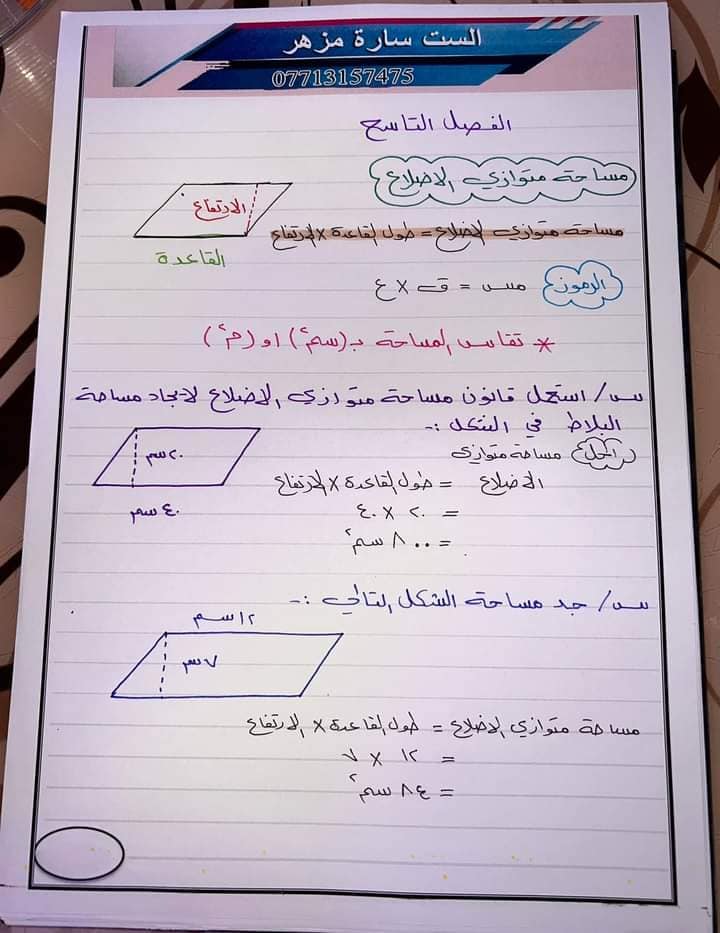 الست سارة مزهر
07713157475
الفصل التاسع
مساحة متوازي الاضلاع
الارتفاع
مساحة متوازي الاضلاع = طول القاعدة × الارتفاع
القاعدة
الرموز مس = ق × ع
* تقاس المساحة بـ (سم٢) او (م٢)
س/ استعمل قانون مساحة متوازي الاضلاع لايجاد مساحة
البلاط في الشكل :-
٢٠ سم
٤٠ سم
الحل مساحة متوازي
الاضلاع = طول القاعدة × الارتفاع
= ٢٠ × ٤٠
= ٨٠٠ سم٢
س/ جد مساحة الشكل التالي :-
١٢ سم
٧ سم
مساحة متوازي الاضلاع = طول القاعدة × الارتفاع
= ١٢ × ٧
= ٨٤ سم٢